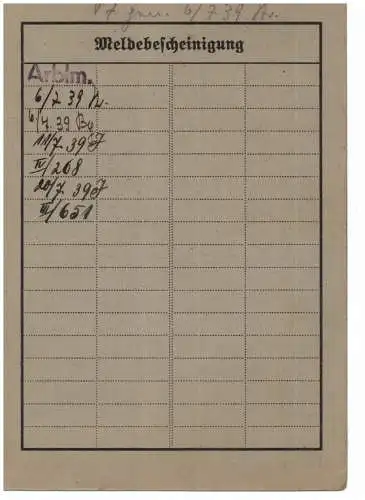 6/7 39
Meldebescheinigung
Arblm.
6/7 39 Kr.
6/7 39 Bo
11/7 39 J
IV/268
20/7 39 J
III/651